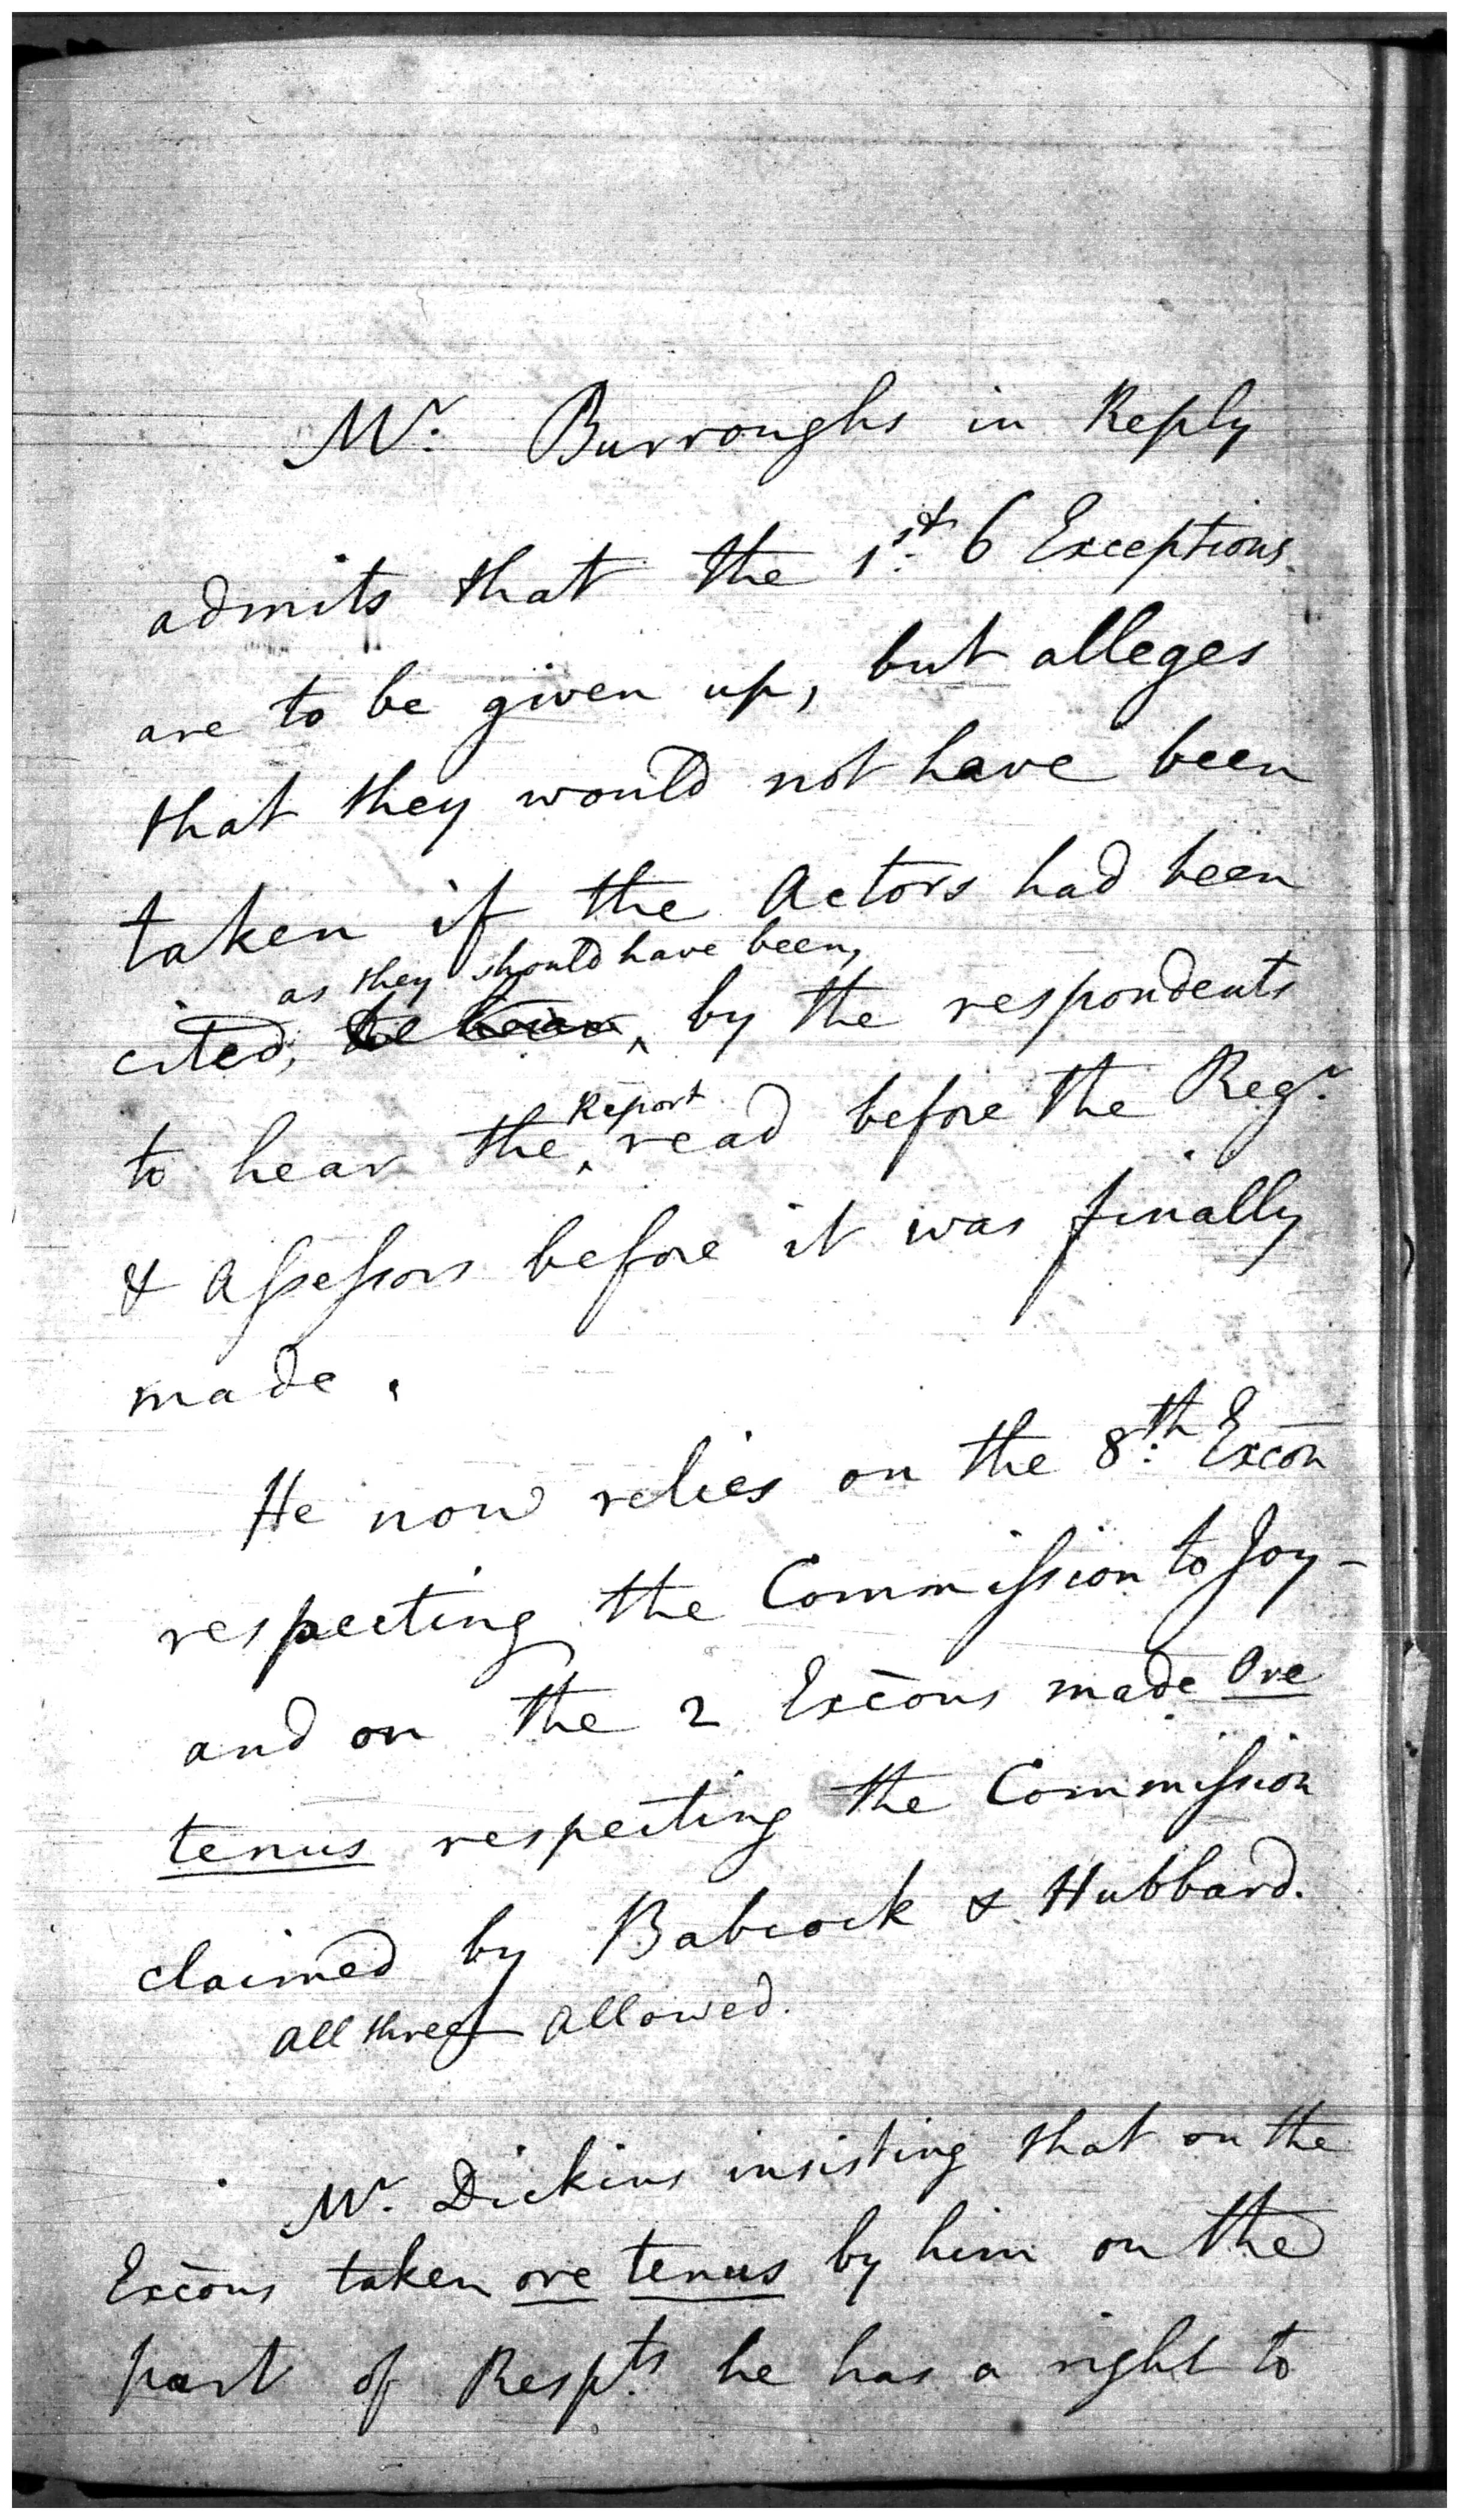 Mr. Burroughs in Reply
admits that the 1st. 6 Exceptions
are to be given up, but alleges
that they would not have been
taken if the Actors had been
as they should have been,
cited, by the respondents
Report
to hear the read before the Regr.
& Assessors before it was finally
made.
He now relies on the 8th. Excõn
respecting the Commission to Joy -
and on the 2 Excõns made Ore
tenus respecting the Commission
claimed by Babcock & Hubbard.
all three allowed.
Mr. Dickins insisting that on the
Excõns taken ore tenus by him on the
part of Respts. he has a right to